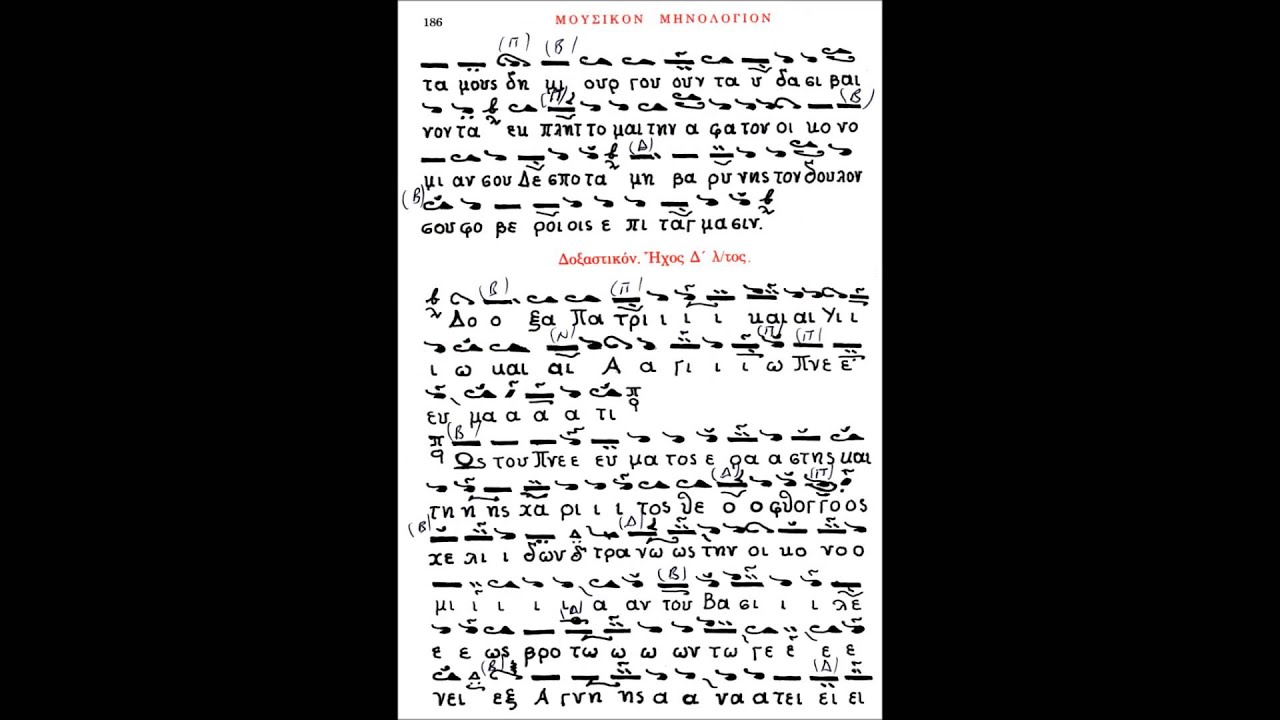 186 ΜΟΥΣΙΚΟΝ ΜΗΝΟΛΟΓΙΟΝ
(Π) (Β)
τα μους δη μι ουρ γου ουν τα υ δα σι βαι
(Π) (Β)
νον τα εκ πλητ το μαι την α φα τον οι κο νο
(Δ)
μι αν σου Δε σπο τα μη βα ρυ νης τον δουλον
(Β)
σου φο βε ροι οις ε πι ταγ μα σιν.
Δοξαστικόν. Ἦχος Δ΄ λ/τος.
(Β) (Π)
Δο ο ξα Πα τρι ι ι ι και αι Υι ι
(Ν) (Π) (Π)
ι ω και αι Α α γι ι ι ω Πνε ε
ευ μα α α α τι
(Β)
Ως του Πνε ε ευ μα τος ε ρα α στης και
(Δ) (Π)
τη η ης χα ρι ι ι τος θε ο ο φθογ γο ος
(Β) (Δ)
χε λι ι δων τρα νω ως την οι κο νο ο
(Β)
μι ι ι ι α αν του Βα σι ι ι λε
(Δ)
ε ε ως βρο τω ω ω ων τω γε ε ε ε
(Β) (Δ)
νει εξ Α γνη ης α α να α τει ει ει